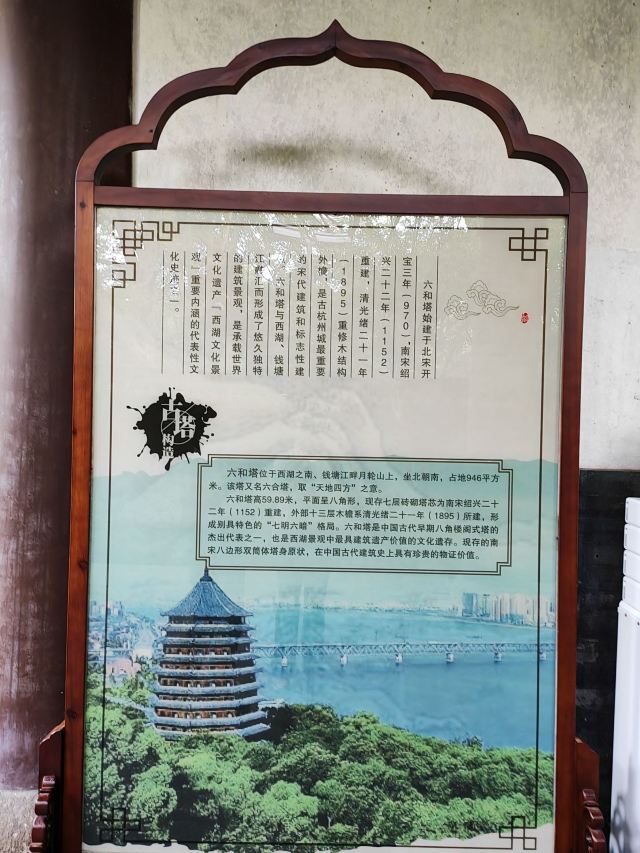 六和塔始建于北宋开
宝三年（970），南宋绍
兴二十二年（1152）
重建，清光绪二十一年
（1895）重修木结构
外檐，是古杭州城最重要
的宋代建筑和标志性建
筑。六和塔与西湖、钱塘
江汇而形成了悠久独特
的建筑景观，是承载世界
文化遗产“西湖文化景
观”重要内涵的代表性文
化史迹之一。
古塔
构造
六和塔位于西湖之南、钱塘江畔月轮山上，坐北朝南，占地946平方
米。该塔又名六合塔，取“天地四方”之意。
六和塔高59.89米，平面呈八角形，现存七层砖砌塔芯为南宋绍兴二十
二年（1152）重建，外部十三层木檐系清光绪二十一年（1895）所建，形
成别具特色的“七明六暗”格局。六和塔是中国古代早期八角楼阁式塔的
杰出代表之一，也是西湖景观中最具建筑遗产价值的文化遗存。现存的南
宋八边形双筒体塔身原状，在中国古代建筑史上具有珍贵的物证价值。